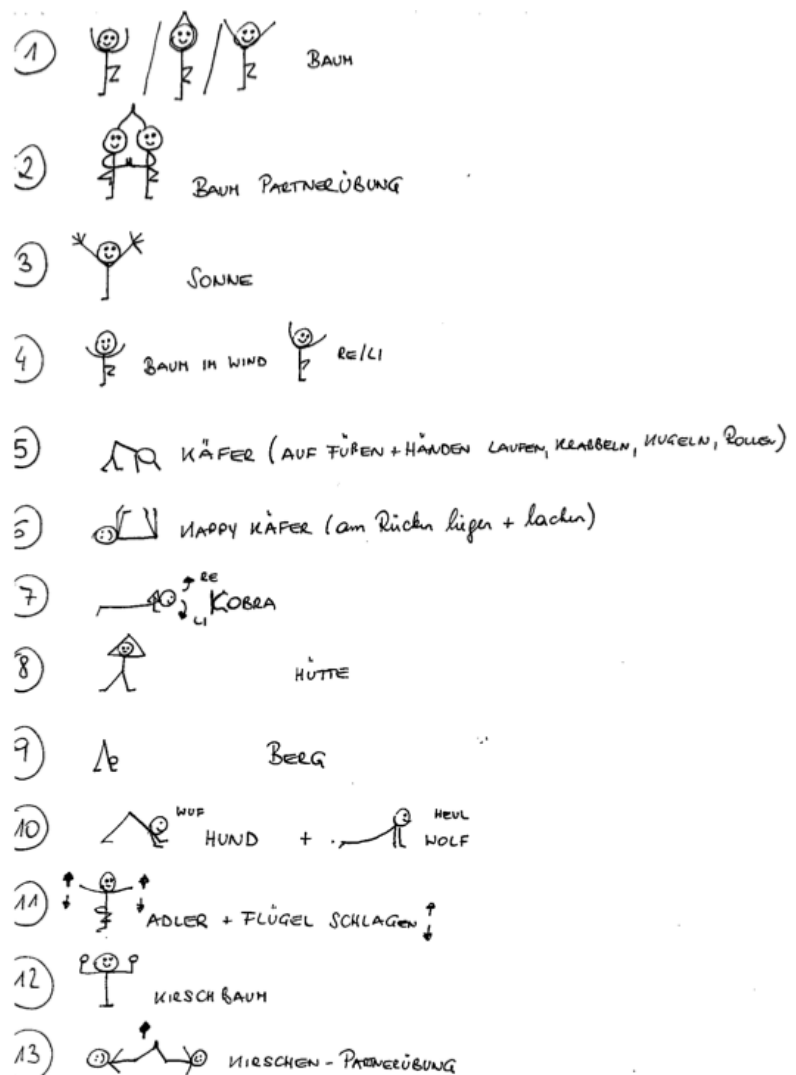 1 BAUM
2 BAUM PARTNERÜBUNG
3 SONNE
4 BAUM IM WIND RE/LI
5 KÄFER (AUF FÜßEN + HÄNDEN LAUFEN, KRABBELN, KUGELN, ROLLEN)
6 HAPPY KÄFER (am Rücken liegen + lachen)
7 RE KOBRA
LI
8 HÜTTE
9 BERG
10 WUF HUND + HEUL WOLF
11 ADLER + FLÜGEL SCHLAGEN
12 KIRSCHBAUM
13 KIRSCHEN-PARTNERÜBUNG